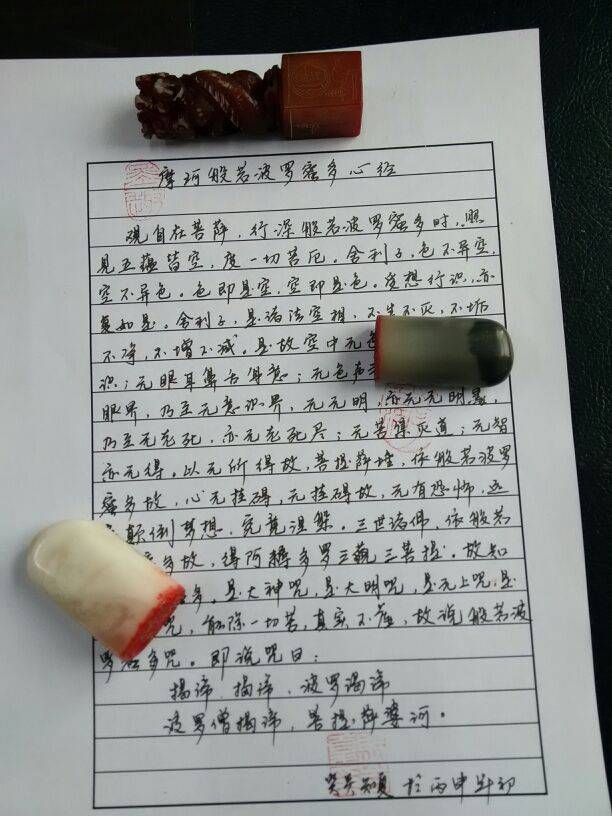 摩诃般若波罗蜜多心经
观自在菩萨，行深般若波罗蜜多时，照
见五蕴皆空，度一切苦厄。舍利子，色不异空，
空不异色。色即是空，空即是色。受想行识，亦
复如是。舍利子，是诸法空相，不生不灭，不垢
不净，不增不减。是故空中无色
识；无眼耳鼻舌身意；无色声
眼界，乃至无意识界，无无明，亦无无明尽，
乃至无老死，亦无老死尽；无苦集灭道；无智
亦无得。以无所得故，菩提萨埵，依般若波罗
蜜多故，心无挂碍，无挂碍故，无有恐怖，远
颠倒梦想，究竟涅槃。三世诸佛，依般若
蜜多故，得阿耨多罗三藐三菩提。故知
多。是大神咒，是大明咒，是无上咒，是
咒，能除一切苦，真实不虚，故说般若波
罗蜜多咒。即说咒曰：
揭谛、揭谛、波罗揭谛
波罗僧揭谛，菩提萨婆诃。
于丙申年初